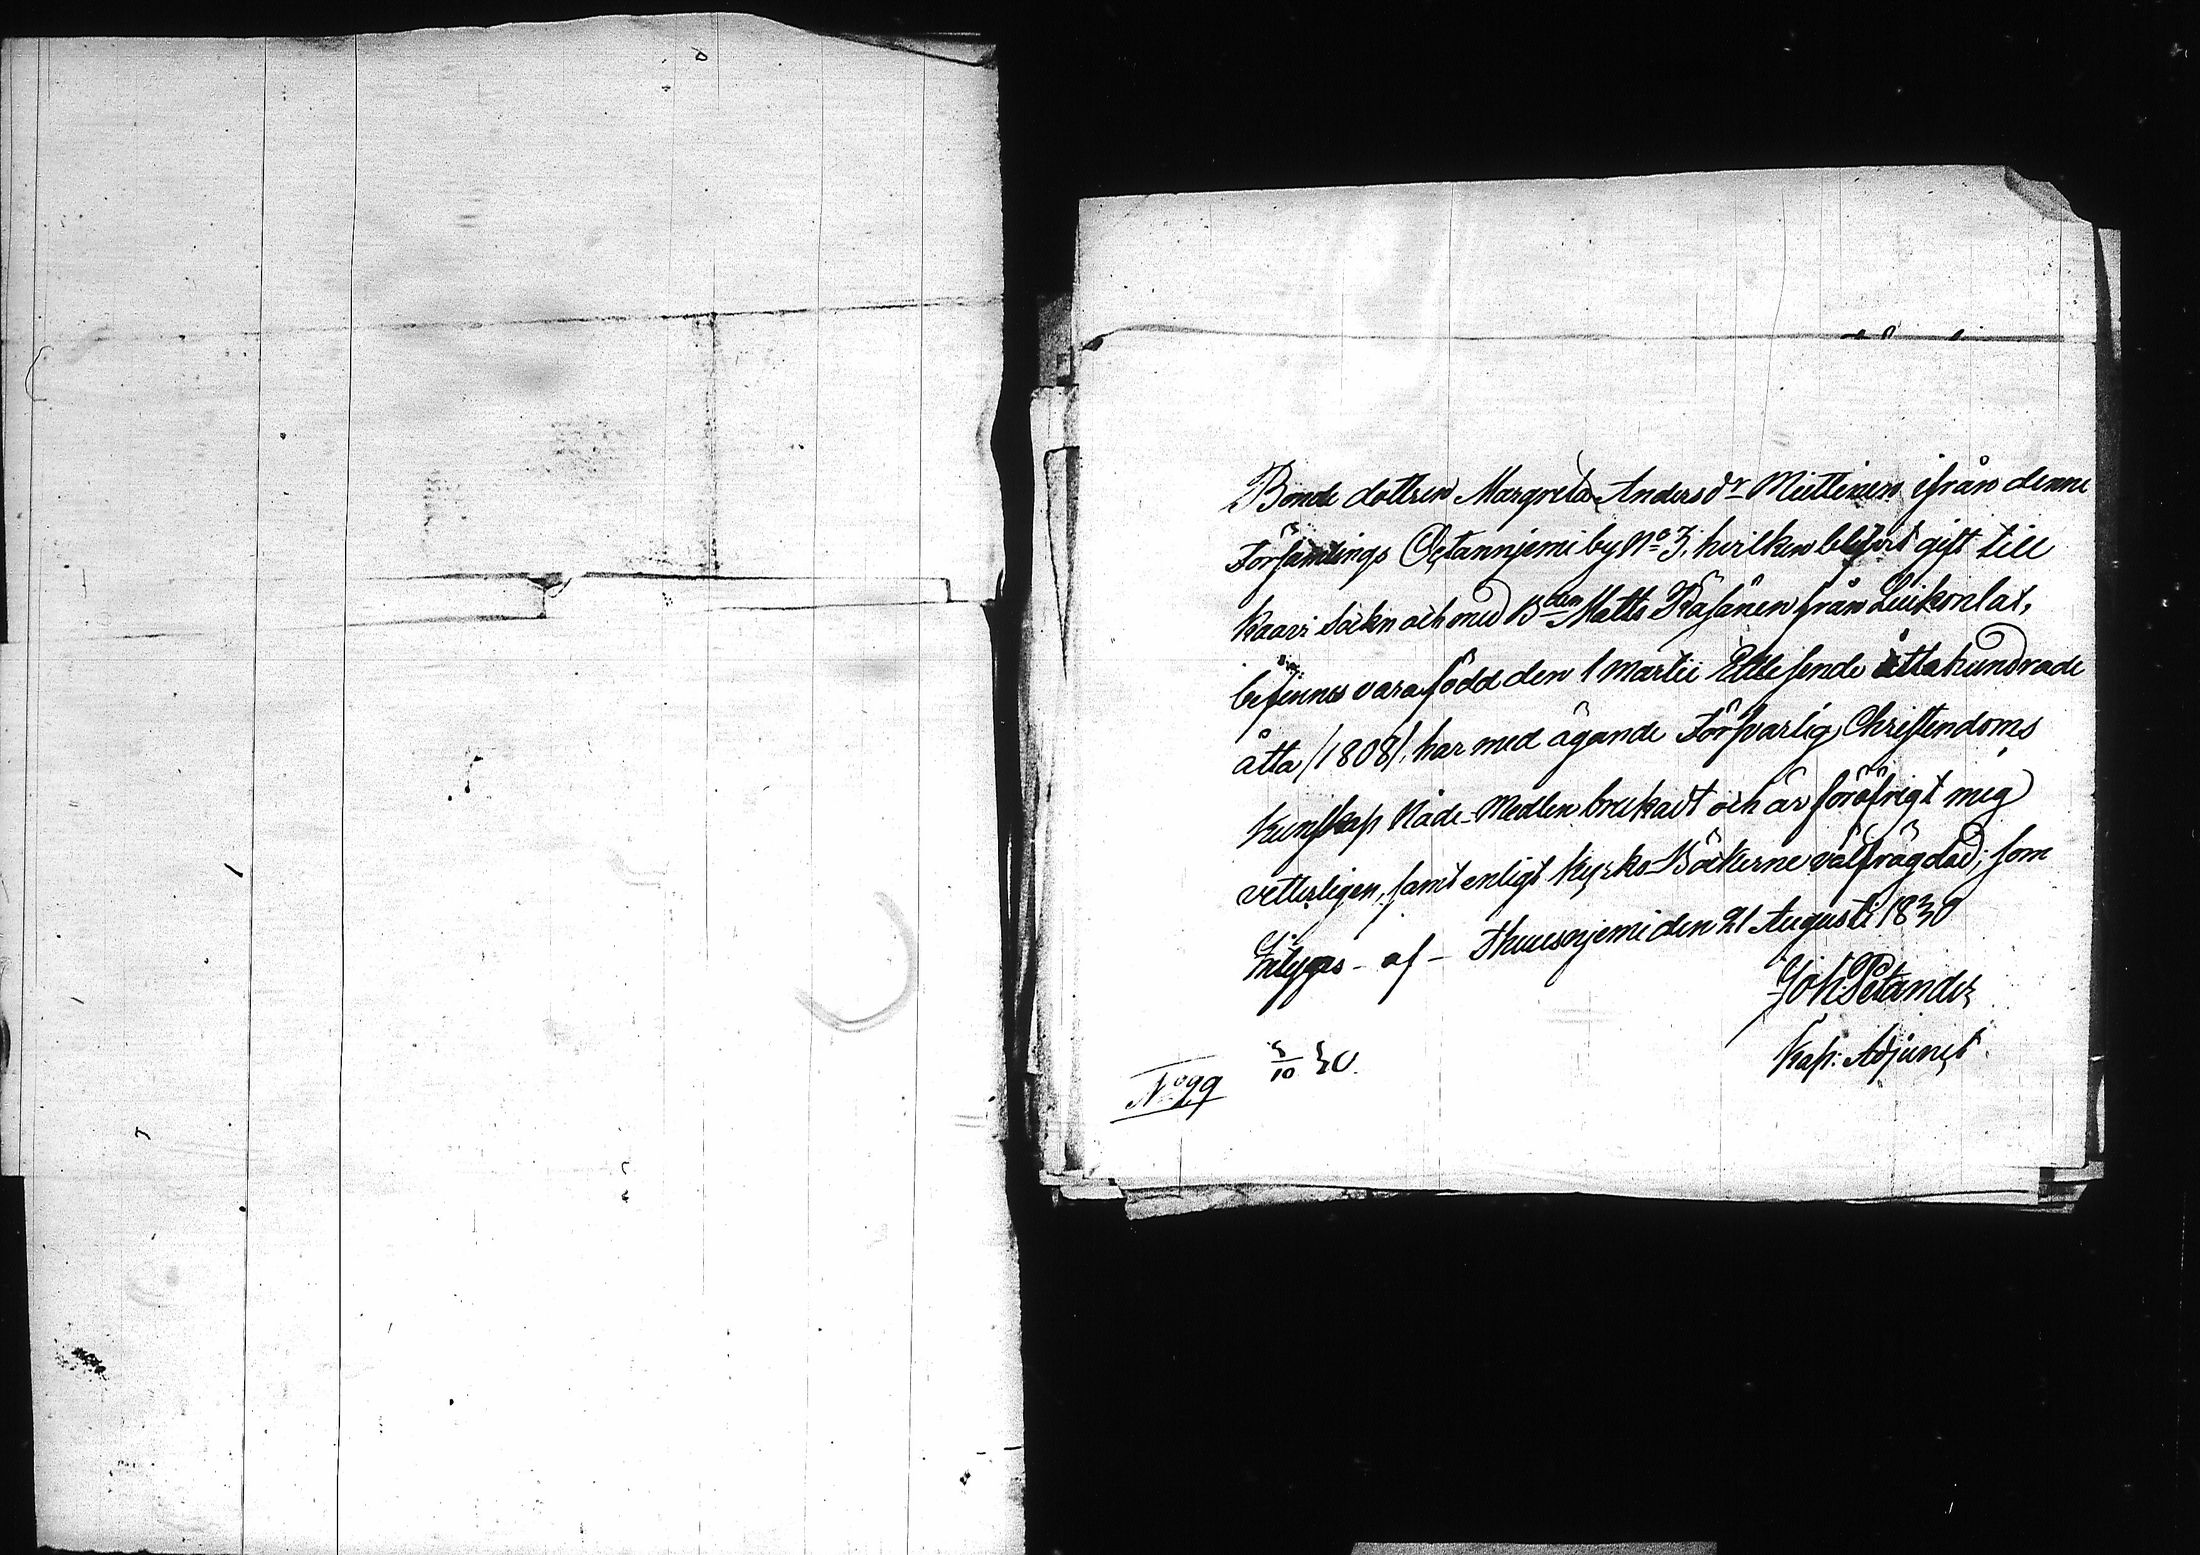 Bonde dottren Margreta Andersdr Miettinen ifrån denne
Församlings Ostannjemi by No 3, hvilken blifvit gift till
Kaavi Socken och med Bden Matts Räsänen från Luikonlax,
befinnes vara född den 1 Martii Ettusende åttahundrade
åtta /1808/, har med ägande Försvarlig Christendoms
Kunskap Nåde-Medlen brukadt och är föröfrigt mig
vetterligen, samt enligt Kyrko-Böckerne välfrägdad; som
Intygas - af - Thuusnjemi den 21 Augusti 1830
Joh: Petander
Kap: Adjunct.
5/10 30.
No 99